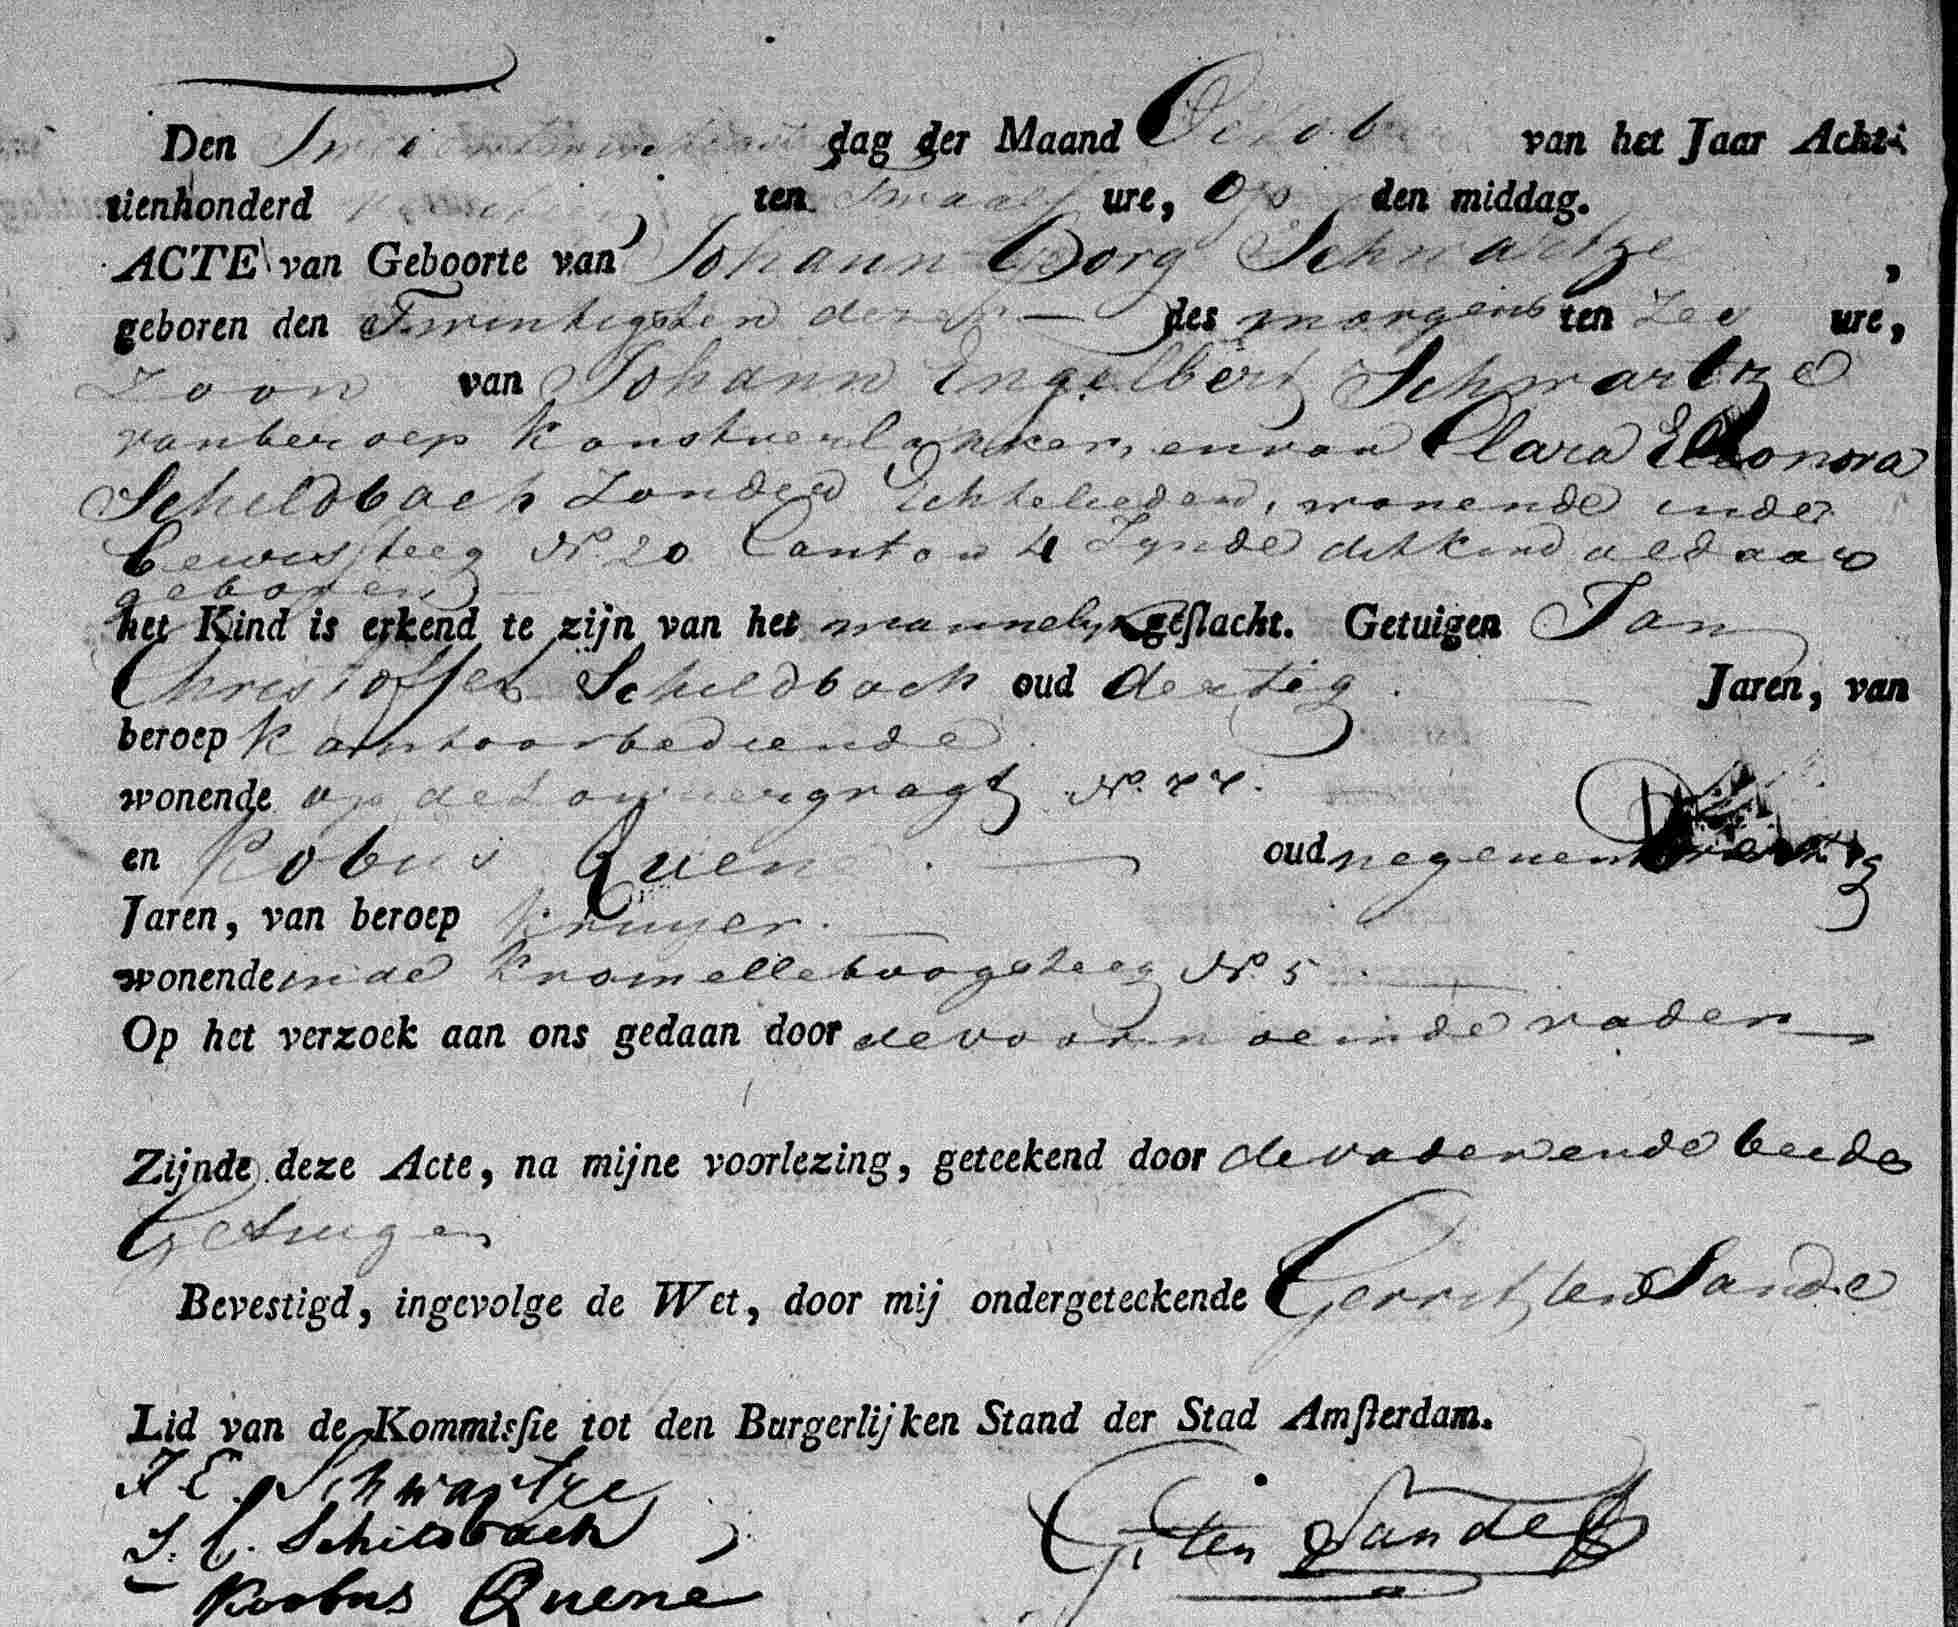 Den Twee en twintigsten dag der Maand October van het Jaar Acht-
tienhonderd veertien, ten Twaalf ure, op den middag.
ACTE van Geboorte van Johann Georg Schwartze,
geboren den Twintigsten dezer — des morgens ten Zes ure,
Zoon van Johann Engelbert Schwartze
van beroep Konstverlakker, en van Clara Eleonora
Schildbach Zonder Echtelieden, wonende in de
steeg N°. 20 Canton 4 Zynde dit kind aldaar
geboren
het Kind is erkend te zijn van het mannelyk geſlacht. Getuigen Jan
Christoffel Schildbach oud dertig Jaren, van
beroep Kantoorbediende
wonende op de gragt N°. 77.
en Kobus Quene oud negenen
Jaren, van beroep Kruyer.
wonende in de Kromelleboogsteeg N°. 5
Op het verzoek aan ons gedaan door de voornoemde vader
Zijnde deze Acte, na mijne voorlezing, geteekend door de vader en de beide
Getuigen
Bevestigd, ingevolge de Wet, door mij ondergeteekende Gerrit ten Sande
Lid van de Kommisſie tot den Burgerlijken Stand der Stad Amſterdam.
J. E. Schwartze
J. C. Schildbach
Koobus Quene
G. ten Sande